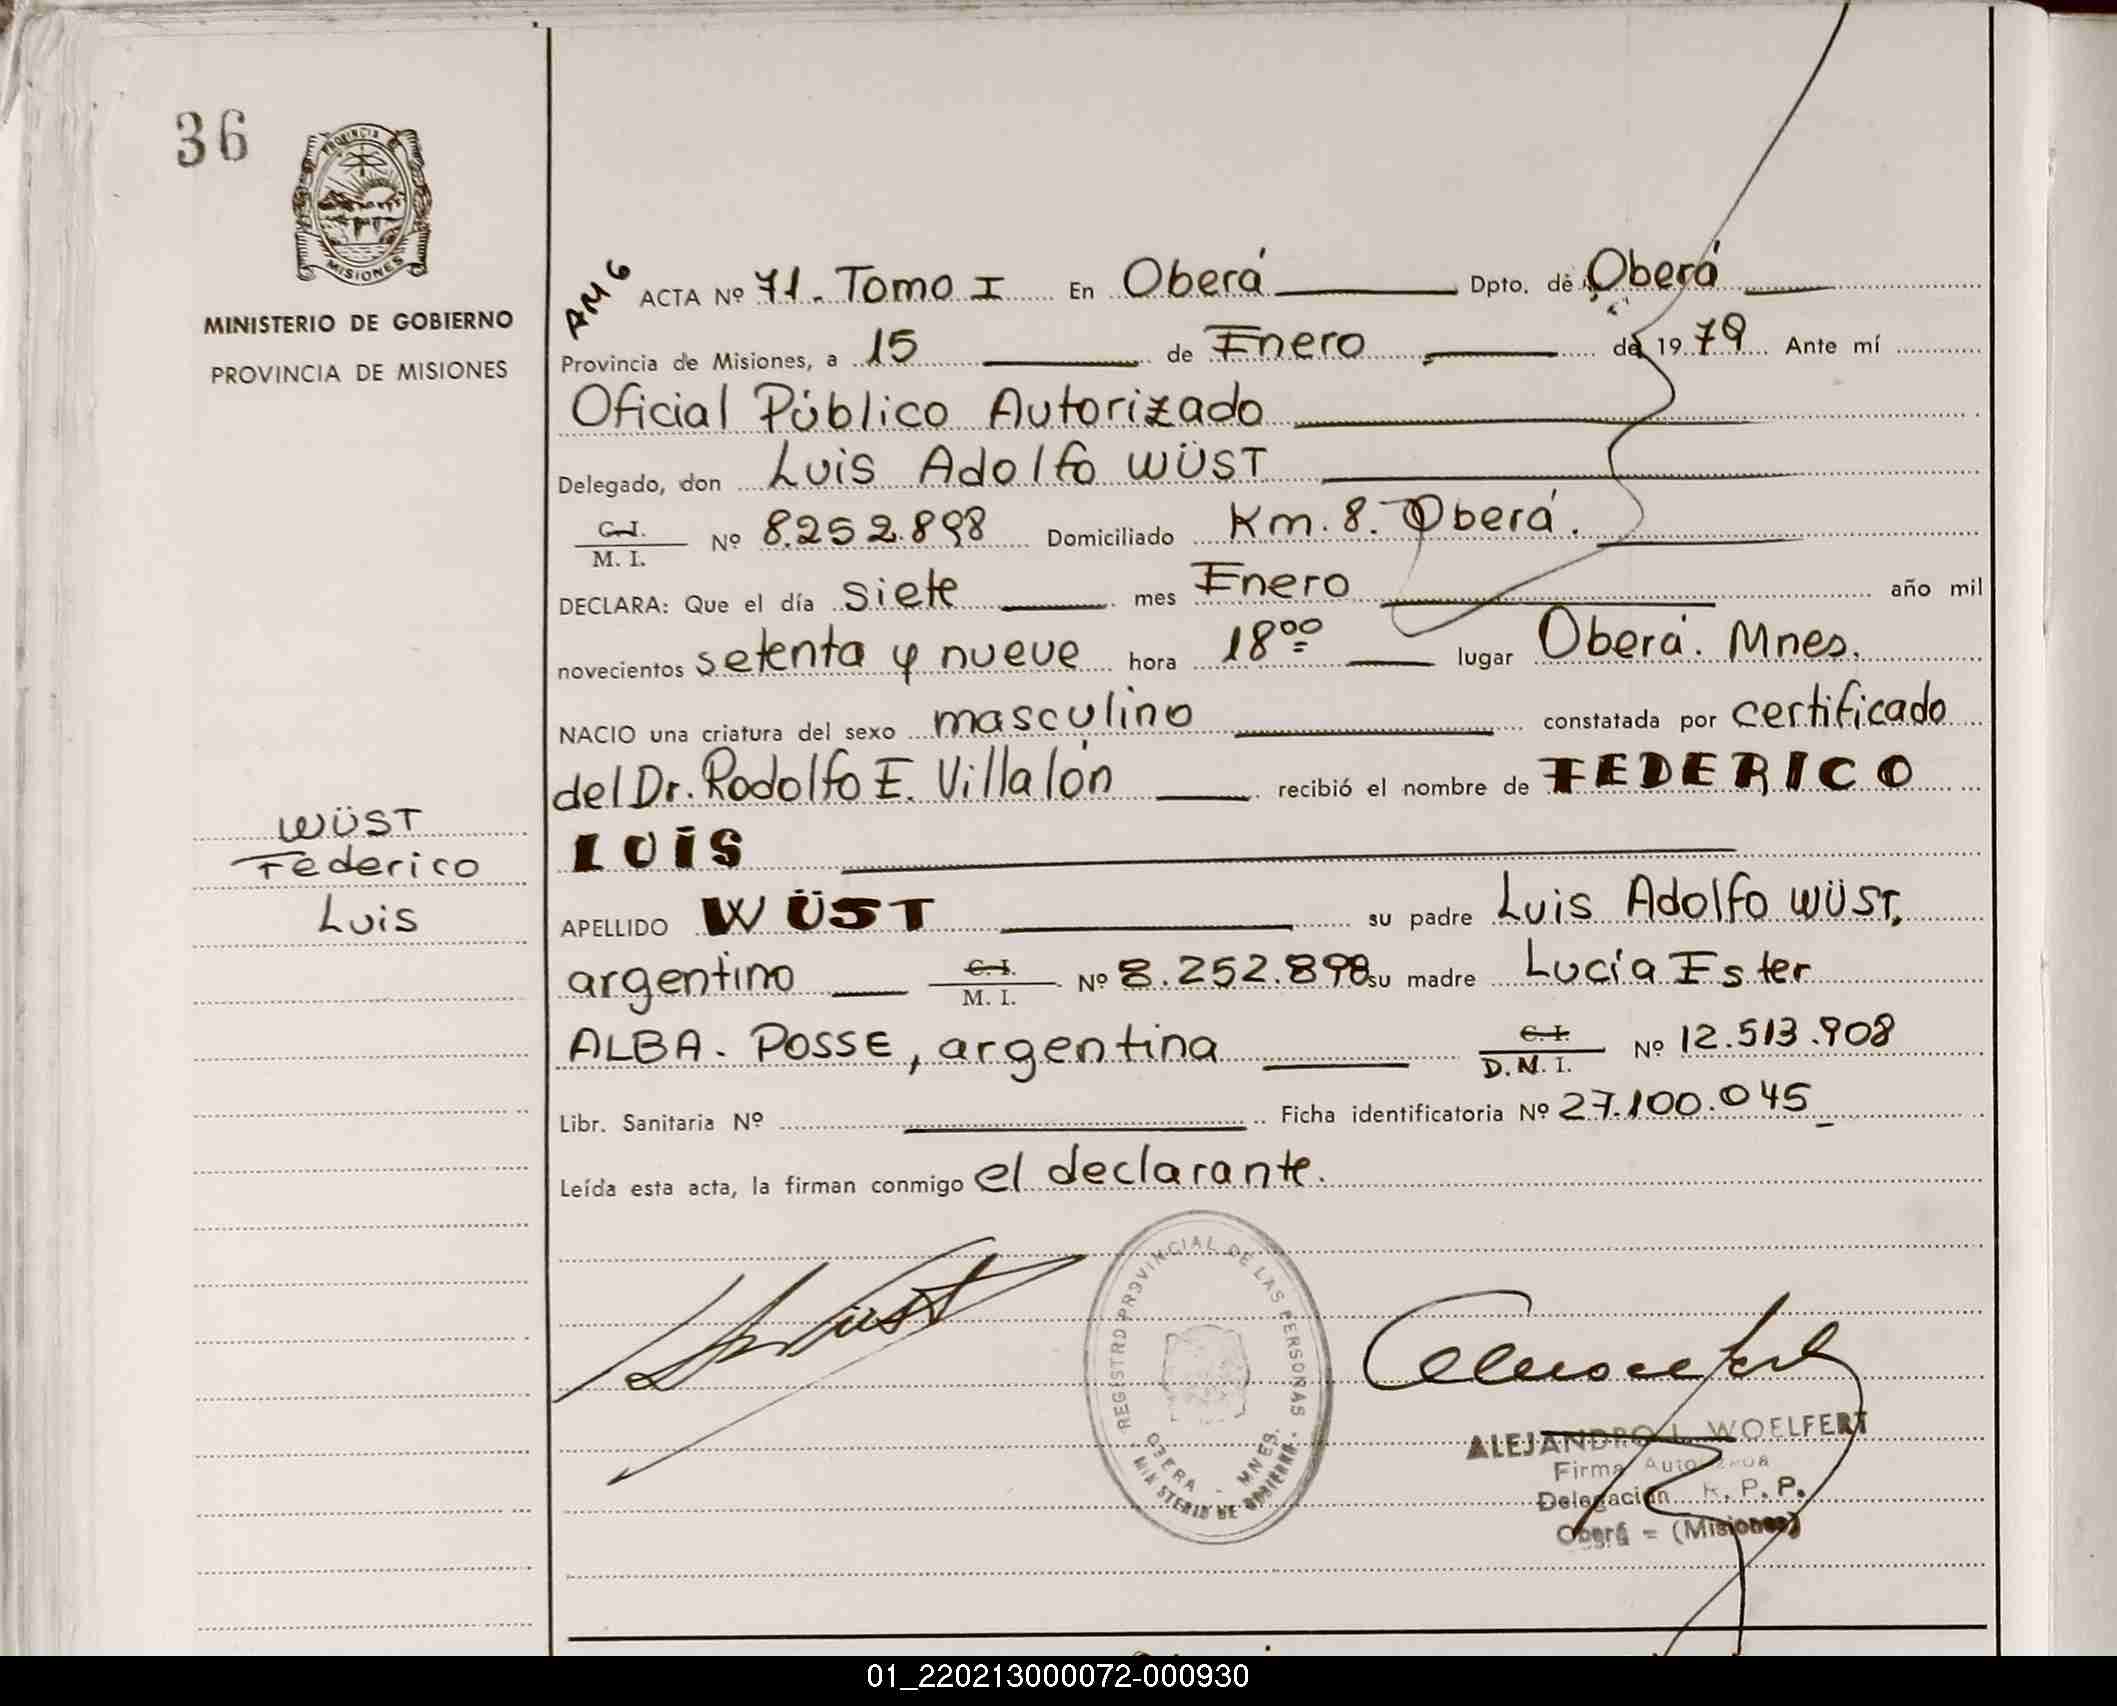 36
PROVINCIA
MISIONES
MINISTERIO DE GOBIERNO
PROVINCIA DE MISIONES
WÜST
Federico
Luis
AM 6
ACTA Nº 71. Tomo I En Oberá Dpto. de Oberá
Provincia de Misiones, a 15 de Enero de 1979 Ante mí
Oficial Público Autorizado
Delegado, don Luis Adolfo WÜST
C.I.
M. I. Nº 8.252.898 Domiciliado Km. 8. Oberá.
DECLARA: Que el día siete mes Enero año mil
novecientos setenta y nueve hora 18⁰⁰ lugar Oberá. Mnes.
NACIO una criatura del sexo masculino constatada por certificado
del Dr. Rodolfo E. Villalón recibió el nombre de FEDERICO
LUIS
APELLIDO WÜST su padre Luis Adolfo WÜST,
argentino C.I.
M. I. Nº 8.252.898 su madre Lucía Ester
ALBA. POSSE, argentina C.I.
D.M.I. Nº 12.513.908
Libr. Sanitaria Nº Ficha identificatoria Nº 27.100.045
Leída esta acta, la firman conmigo el declarante.
REGISTRO PROVINCIAL DE LAS PERSONAS
OBERA - MNES.
MINISTERIO DE GOBIERNO
ALEJANDRO L. WOELFERT
Firma Autorizada
Delegación R. P. P.
Oberá = (Misiones)
01_220213000072-000930